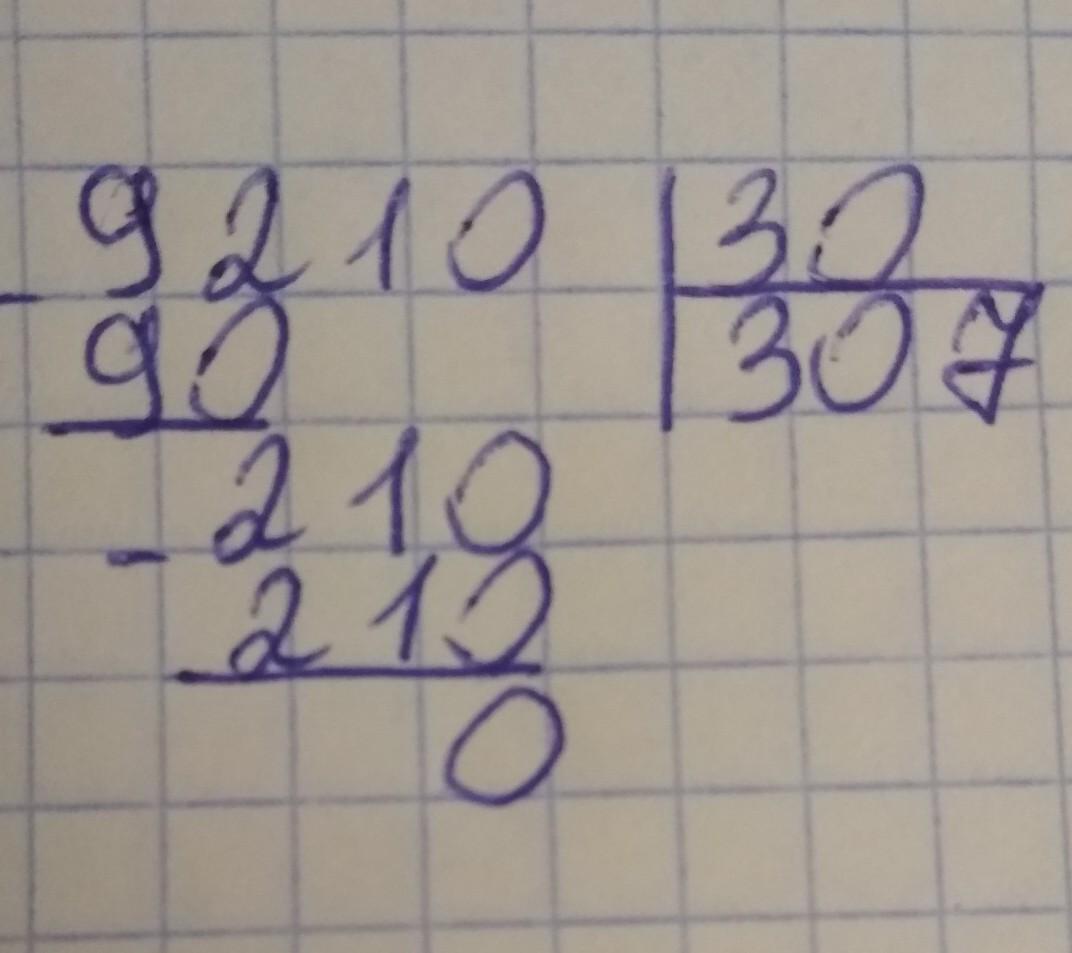 9210 | 30
- 90 | 307
- 210
210
0